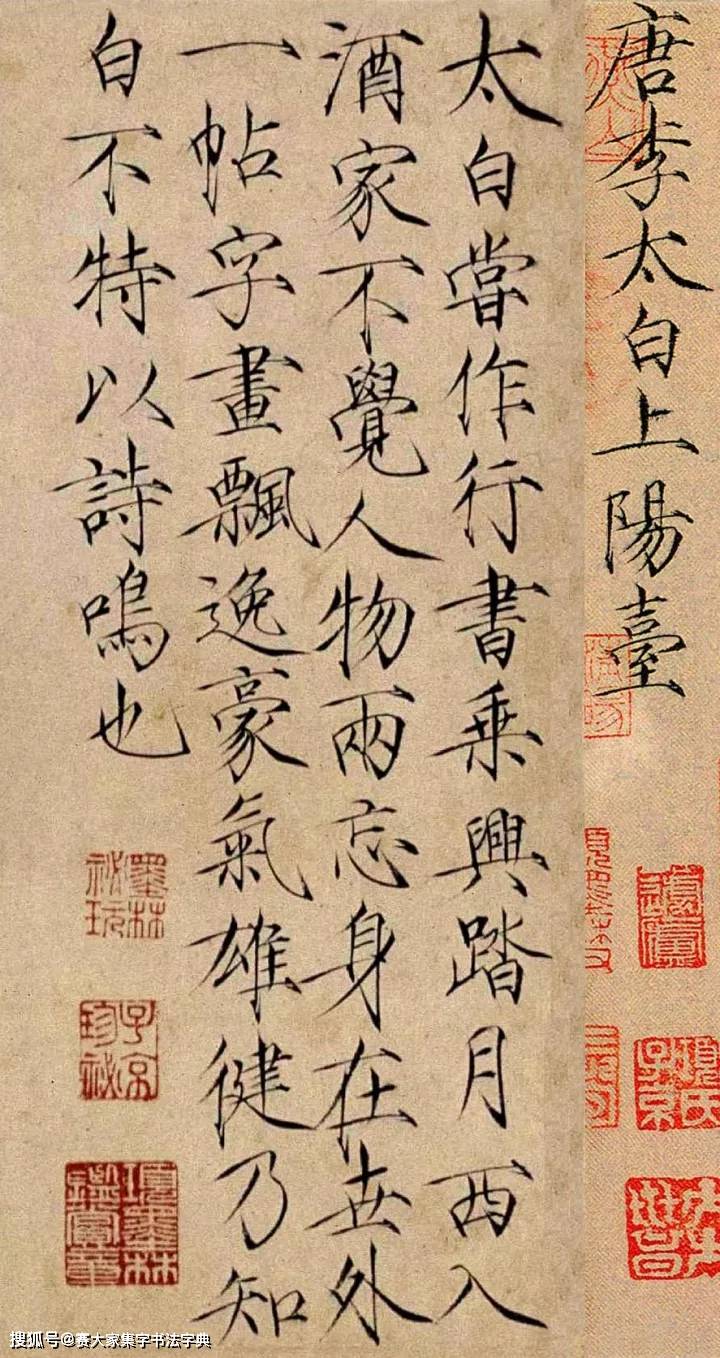 唐李太白上陽臺
太白嘗作行書乗興踏月西入
酒家不覺人物兩忘身在世外
一帖字畫飄逸豪氣雄徤乃知
白不特以詩鳴也
墨林祕玩
子京珍祕
項墨林鑑賞章
搜狐号@赛大家集字书法字典